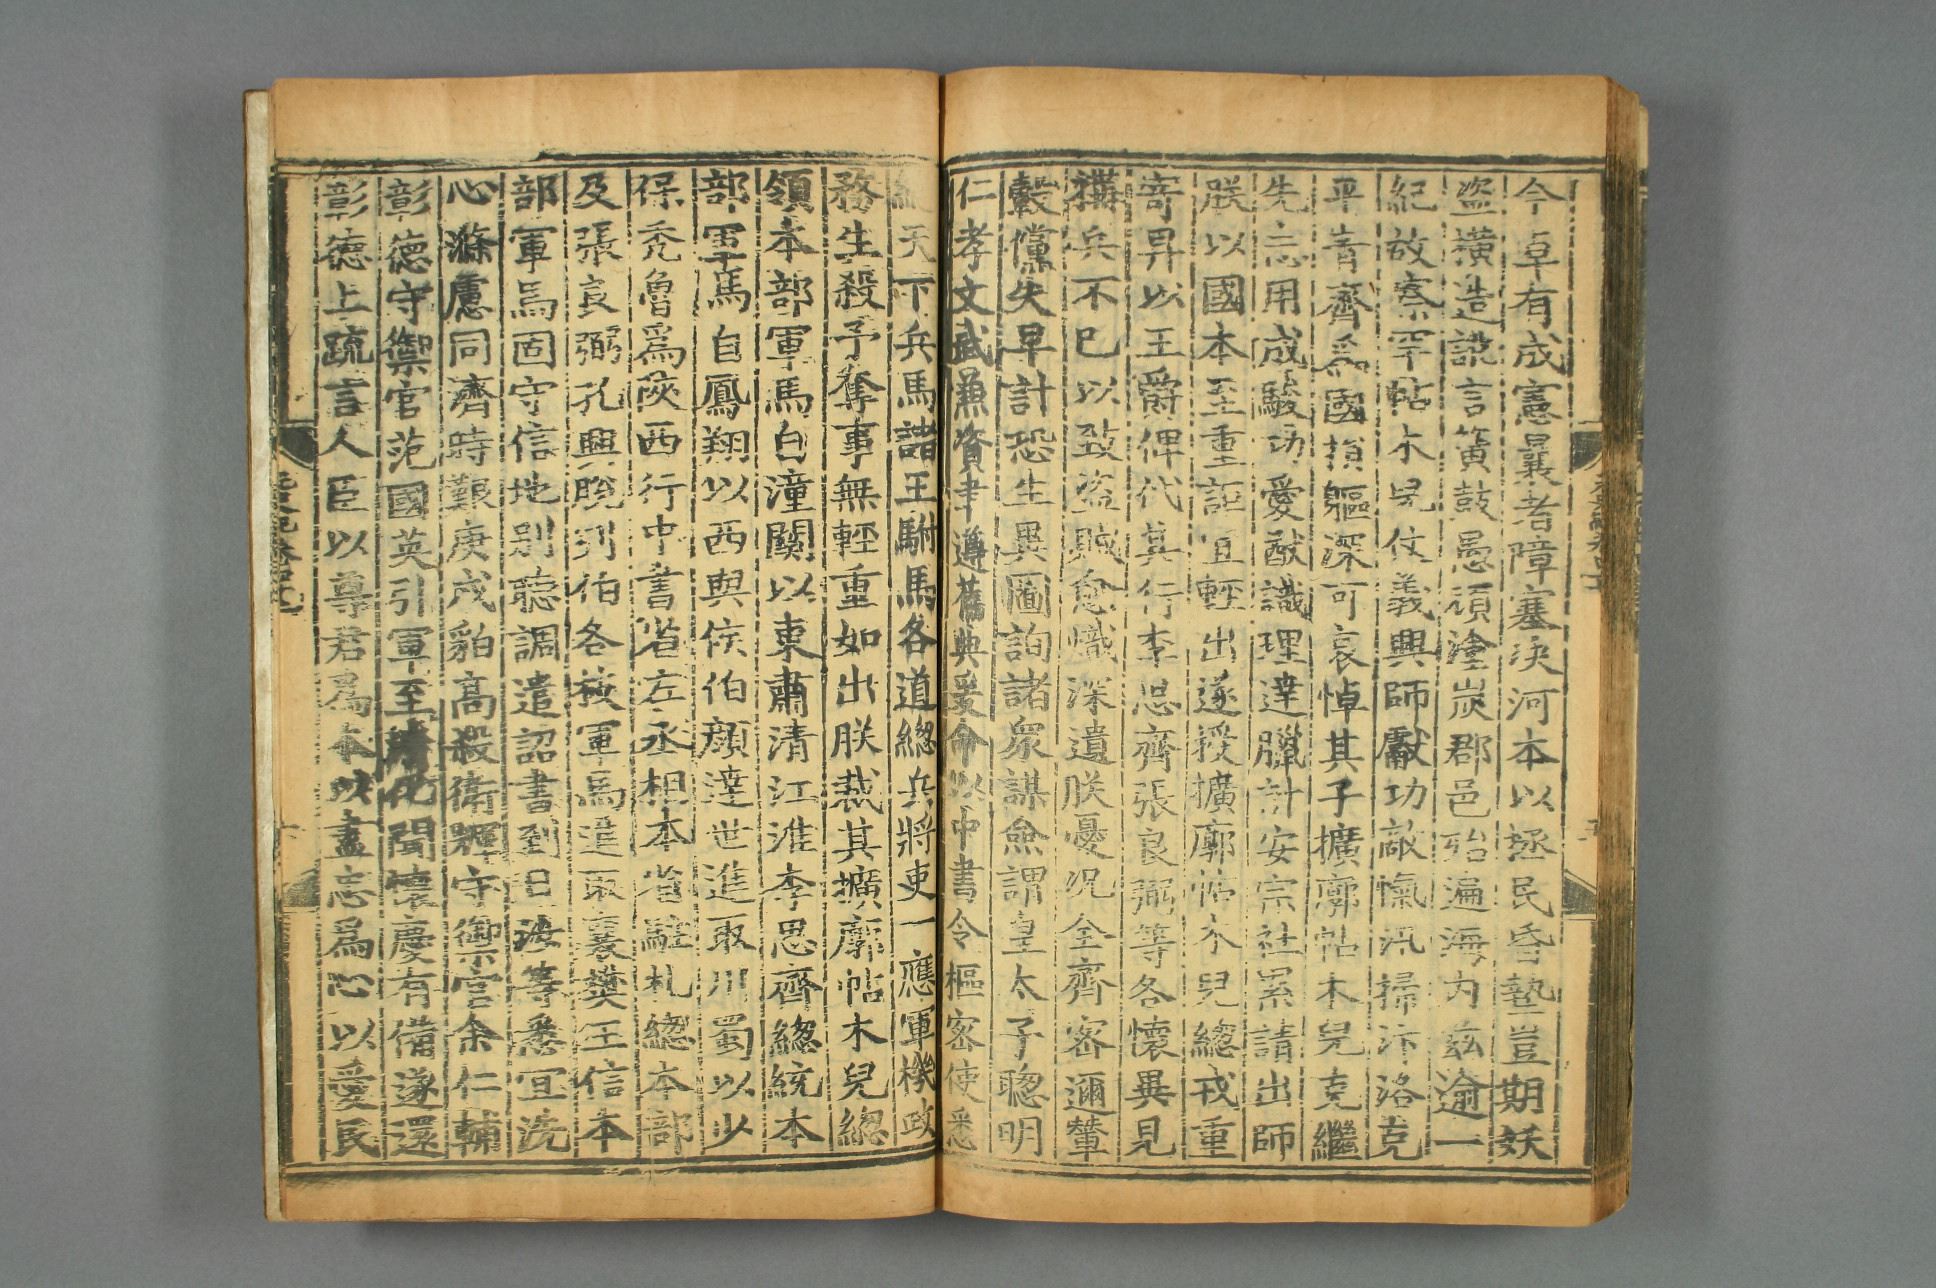 今卓有成憲曩者障塞決河本以拯民昏墊豈期妖
盜橫造訛言簧鼓愚頑塗炭郡邑殆遍海內茲逾一
紀故察罕帖木兒仗義興師獻功敵愾汛掃汴洛克
平青齊為國損軀深可哀悼其子擴廓帖木兒克繼
先志用成駿功愛猷識理達臘計安宗社累請出師
朕以國本至重詎宜輕出遂授擴廓帖木兒總戎重
寄畀以王爵俾代其行李思齊張良弼等各懷異見
構兵不已以致盜賊愈熾深遺朕憂況全齊密邇輦
轂儻失早計恐生異圖詢諸眾謀僉謂皇太子聰明
仁孝文武兼資聿遵舊典爰命以中書令樞密使悉
統天下兵馬諸王駙馬各道總兵將吏一應軍機政
務生殺予奪事無輕重如出朕裁其擴廓帖木兒總
領本部軍馬自潼關以東肅清江淮李思齊總統本
部軍馬自鳳翔以西與侯伯顏達世進取川蜀以少
保禿魯為陝西行中書省左丞相本省駐札總本部
及張良弼孔興脫列伯各枝軍馬進取襄樊王信本
部軍馬固守信地別聽調遣詔書到日汝等悉宜洗
心滌慮同濟時艱庚戌貊高殺衛輝守禦官余仁輔
彰德守禦官范國英引軍至清化聞懷慶有備遂還
彰德上疏言人臣以尊君為本以盡忠為心以愛民